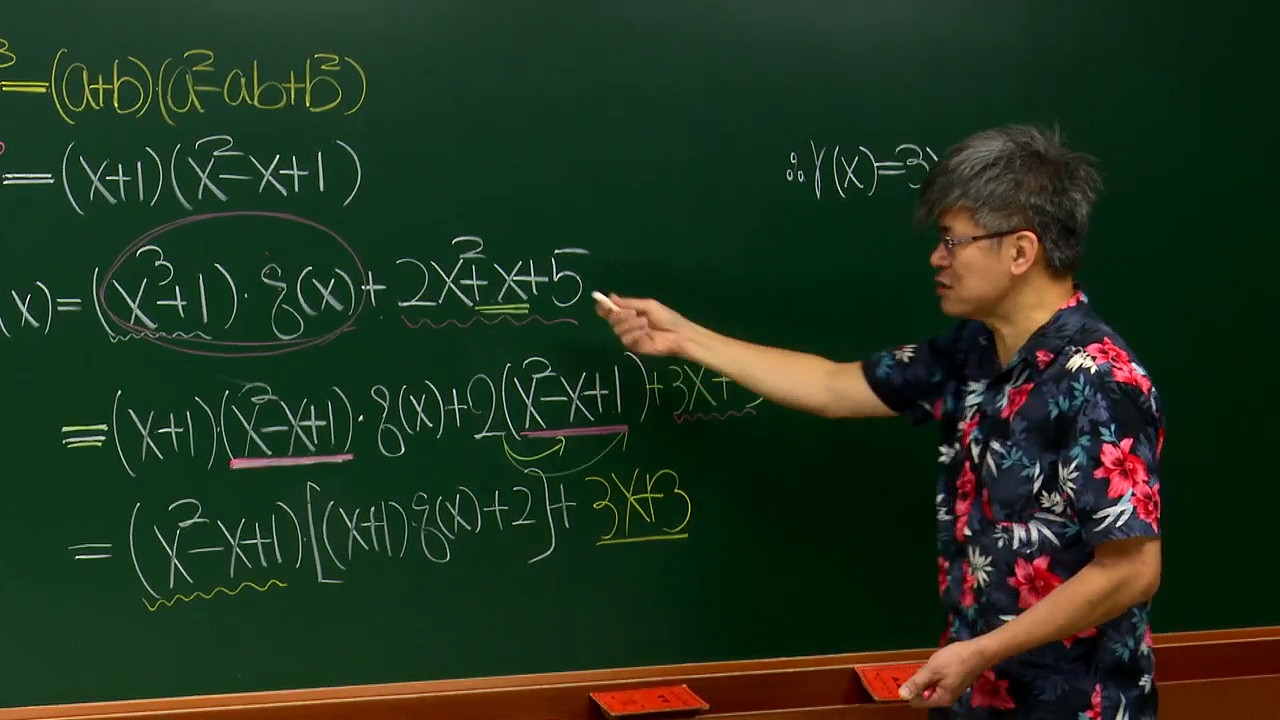 ³=(a+b)(a²-ab+b²)
=(x+1)(x²-x+1)
(x)=(x³+1)·q(x)+2x²+x+5
=(x+1)(x²-x+1)·q(x)+2(x²-x+1)+3x+3
=(x²-x+1)[(x+1)q(x)+2]+3x+3
∴r(x)=3x